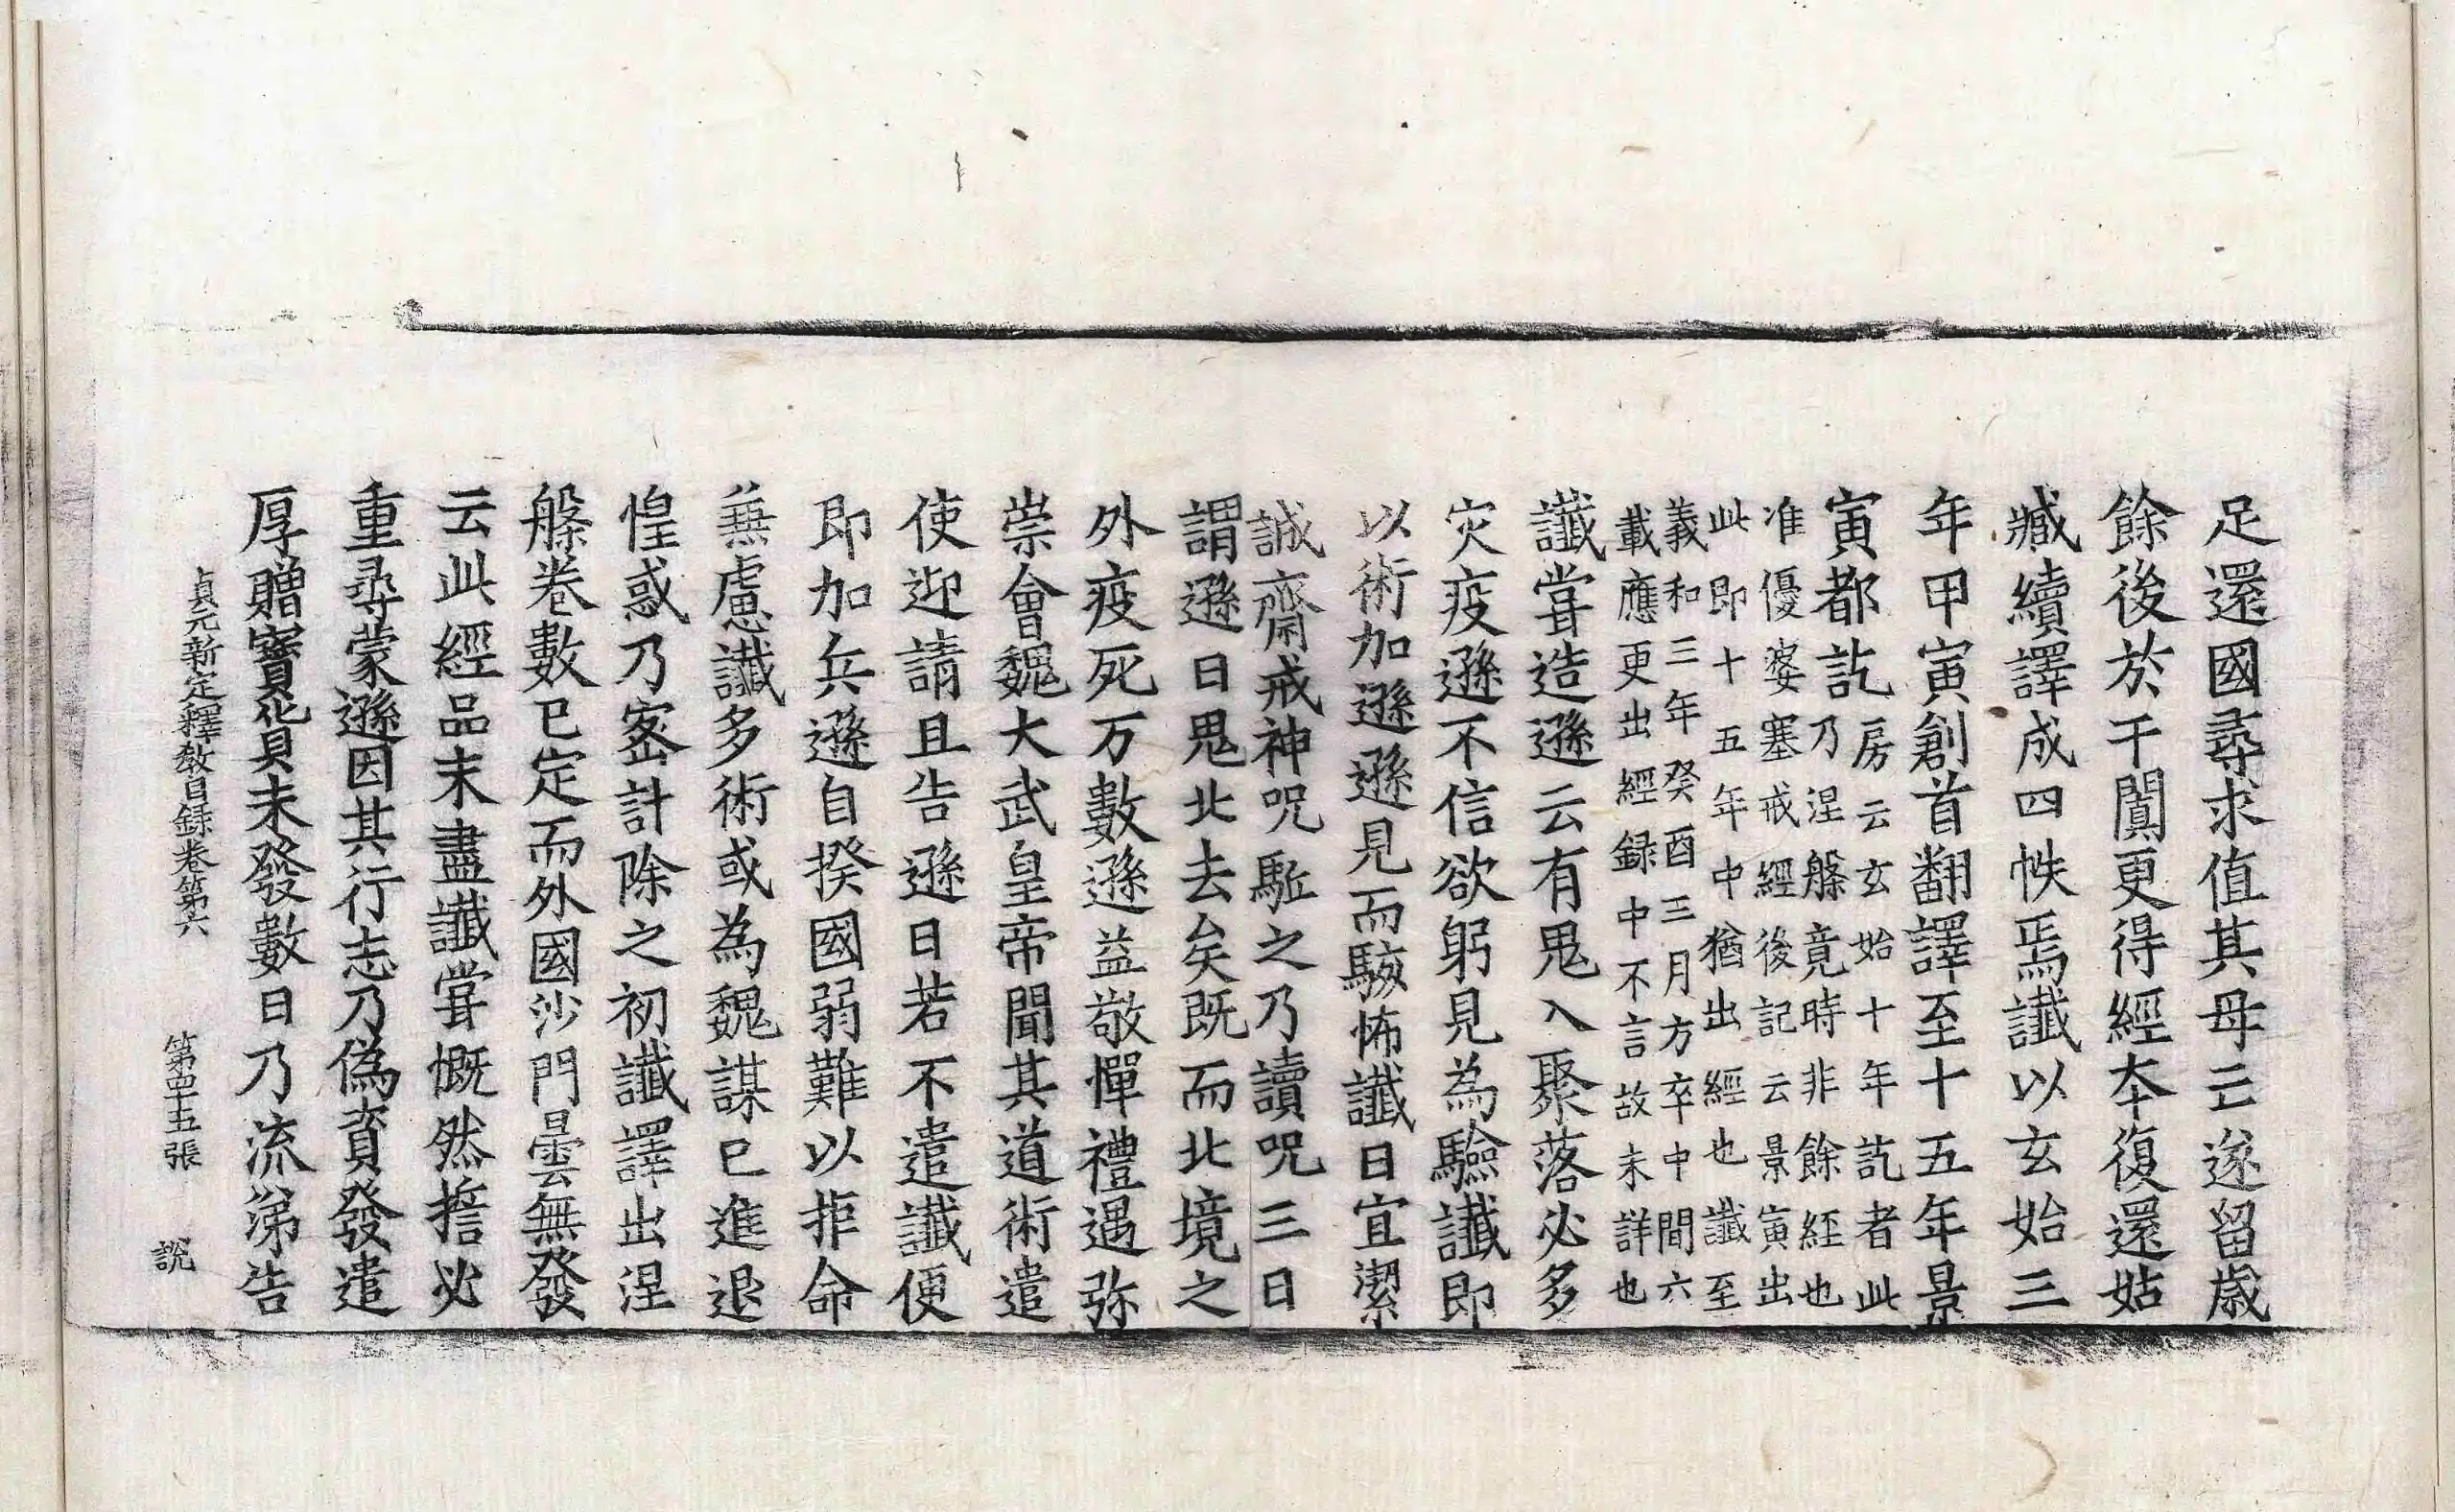 足還國尋求值其母亡遂留歲
餘後於于闐更得經夲復還姑
臧續譯成四帙焉讖以玄始三
年甲寅創首翻譯至十五年景
寅都訖房云玄始十年訖者此
乃涅槃竟時非餘経也
准優婆塞戒經後記云景寅出
此即十五年中猶出經也讖至
義和三年癸酉三月方卒中間六
載應更出經録中不言故未詳也
讖甞造遜云有鬼入聚落必多
灾疫遜不信欲躬見為驗讖即
以術加遜遜見而駭怖讖曰宜潔
誠齋戒神呪駈之乃讀呪三日
謂遜曰鬼北去矣既而北境之
外疫死万數遜益敬憚禮遇弥
崇會魏大武皇帝聞其道術遣
使迎請且告遜曰若不遣讖便
即加兵遜自揆國弱難以拒命
兼慮讖多術或為魏謀已進退
惶惑乃宻計除之初讖譯出涅
槃卷數已定而外國沙門曇無發
云此經品末盡讖甞慨然擔必
重尋蒙遜因其行志乃偽資發遣
厚贈寶貨未發數日乃流涕告
貞元新定釋教目録卷第六　第四十五張　說